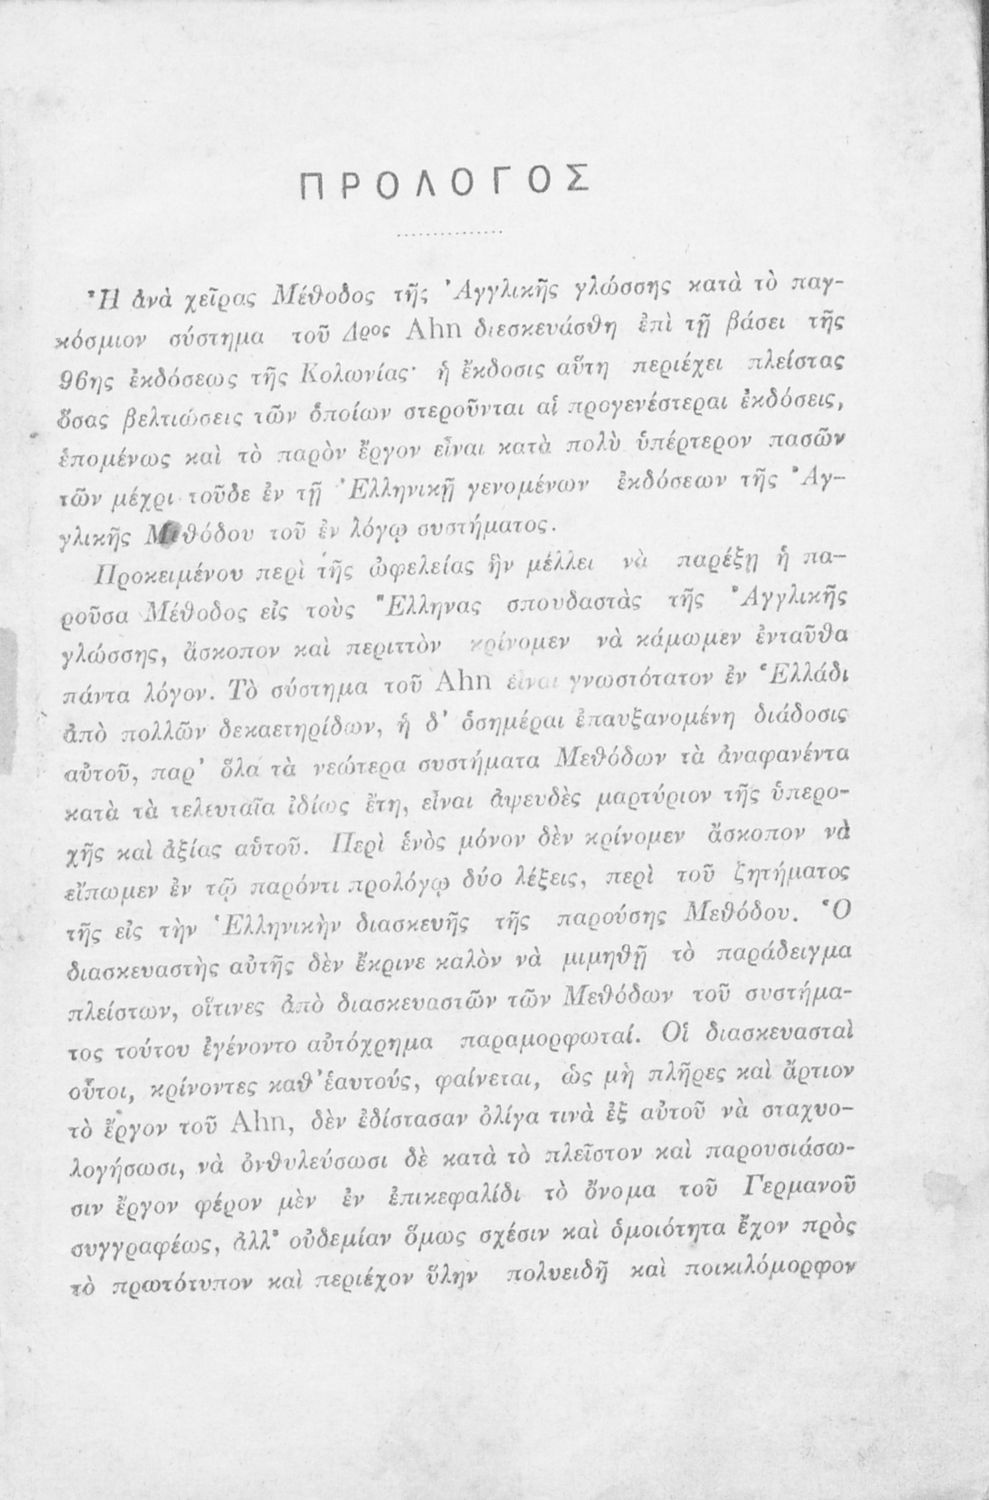 ΠΡΟΛΟΓΟΣ
Ἡ ἀνὰ χεῖρας Μέθοδος τῆς Ἀγγλικῆς γλώσσης κατὰ τὸ παγ-
κόσμιον σύστημα τοῦ Δρος Ahn διεσκευάσθη ἐπὶ τῇ βάσει τῆς
96ης ἐκδόσεως τῆς Κολωνίας· ἡ ἔκδοσις αὕτη περιέχει πλείστας
ὅσας βελτιώσεις τῶν ὁποίων στεροῦνται αἱ προγενέστεραι ἐκδόσεις,
ἑπομένως καὶ τὸ παρὸν ἔργον εἶναι κατὰ πολὺ ὑπέρτερον πασῶν
τῶν μέχρι τοῦδε ἐν τῇ Ἑλληνικῇ γενομένων ἐκδόσεων τῆς Ἀγ-
γλικῆς Μεθόδου τοῦ ἐν λόγῳ συστήματος.
Προκειμένου περὶ τῆς ὠφελείας ἣν μέλλει νὰ παρέξῃ ἡ πα-
ροῦσα Μέθοδος εἰς τοὺς Ἕλληνας σπουδαστὰς τῆς Ἀγγλικῆς
γλώσσης, ἄσκοπον καὶ περιττὸν κρίνομεν νὰ κάμωμεν ἐνταῦθα
πάντα λόγον. Τὸ σύστημα τοῦ Ahn εἶναι γνωστότατον ἐν Ἑλλάδι
ἀπὸ πολλῶν δεκαετηρίδων, ἡ δ' ὁσημέραι ἐπαυξανομένη διάδοσις
αὐτοῦ, παρ' ὅλα τὰ νεώτερα συστήματα Μεθόδων τὰ ἀναφανέντα
κατὰ τὰ τελευταῖα ἰδίως ἔτη, εἶναι ἀψευδὲς μαρτύριον τῆς ὑπερο-
χῆς καὶ ἀξίας αὐτοῦ. Περὶ ἑνὸς μόνον δὲν κρίνομεν ἄσκοπον νὰ
εἴπωμεν ἐν τῷ παρόντι προλόγῳ δύο λέξεις, περὶ τοῦ ζητήματος
τῆς εἰς τὴν Ἑλληνικὴν διασκευῆς τῆς παρούσης Μεθόδου. Ὁ
διασκευαστὴς αὐτῆς δὲν ἔκρινε καλὸν νὰ μιμηθῇ τὸ παράδειγμα
πλείστων, οἵτινες ἀπὸ διασκευαστῶν τῶν Μεθόδων τοῦ συστήμα-
τος τούτου ἐγένοντο αὐτόχρημα παραμορφωταί. Οἱ διασκευασταὶ
οὗτοι, κρίνοντες καθ' ἑαυτούς, φαίνεται, ὡς μὴ πλῆρες καὶ ἄρτιον
τὸ ἔργον τοῦ Ahn, δὲν ἐδίστασαν ὀλίγα τινὰ ἐξ αὐτοῦ νὰ σταχυο-
λογήσωσι, νὰ ὀνθυλεύσωσι δὲ κατὰ τὸ πλεῖστον καὶ παρουσιάσω-
σιν ἔργον φέρον μὲν ἐν ἐπικεφαλίδι τὸ ὄνομα τοῦ Γερμανοῦ
συγγραφέως, ἀλλ' οὐδεμίαν ὅμως σχέσιν καὶ ὁμοιότητα ἔχον πρὸς
τὸ πρωτότυπον καὶ περιέχον ὕλην πολυειδῆ καὶ ποικιλόμορφον